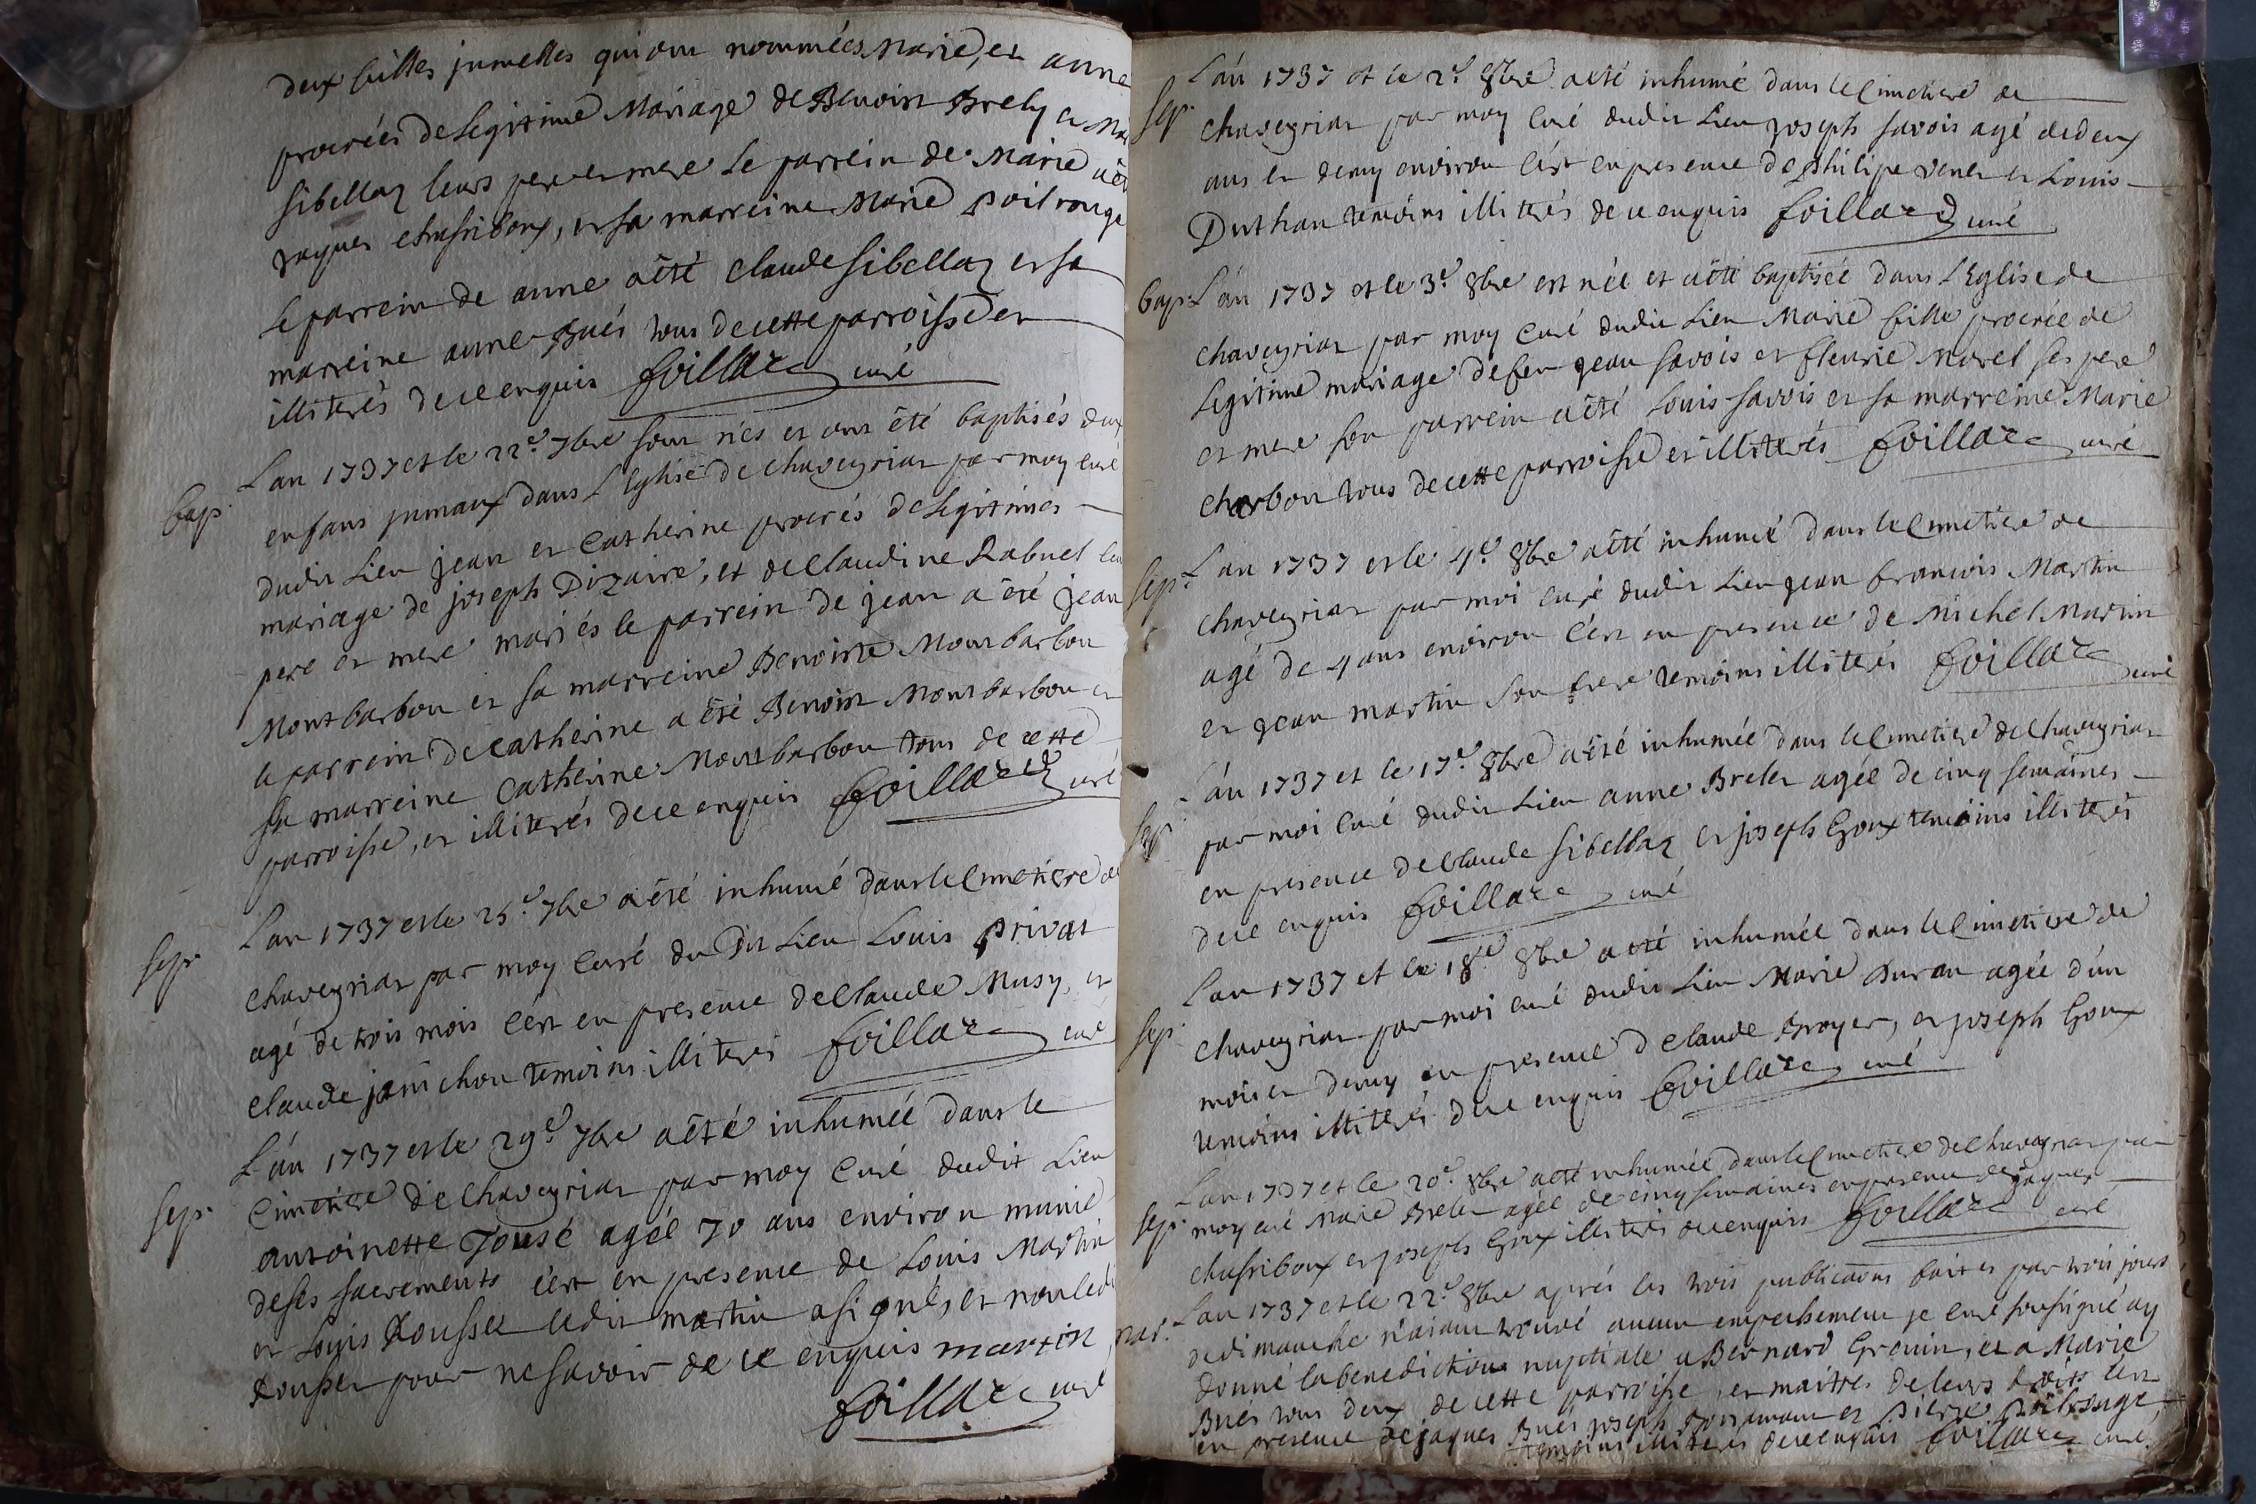 deux filles jumelles qui ont nommées Marie, et anne
procréés de legitime Mariage de Benoist Brely et
Sibellaz leurs pere et mere le parrein de Marie
jaques chassiboux, et sa marreine Marie Poilrouge
le parrein de anne a été claude Sibellaz et sa
marreine anne Bués tous de cette parroisse et
illiterés de ce enquis foillard curé
bap. L'an 1737 et le 22e 7bre sont nés et ont été baptisés deux
enfans jumaux dans l'Eglise de chaveyriat par moy curé
dudit Lieu jean et Catherine procréés de legitimes
mariage de joseph Dizaire, et de claudine Rabuel
pere et mere mariés le parrein de jean a été jean
Montbarbon et sa marreine Benoiste Montbarbon
le parrein de catherine a été Benoist Montbarbon et
sa marreine Catherine Montbarbon tous de cette
parroisse, et illiterés de ce enquis foillard curé
sep. L'an 1737 et le 25e 7bre a été inhumé dans le Cimetiere de
chaveyriat par moy Curé du Dit Lieu Louis Privat
agé de trois mois c'ést en presence de claude Musy, et
claude janichon temoins illiterés foillard curé
sep. L'án 1737 et le 29e 7bre a été inhumée dans le
Cimetiere de chaveyriat par moy Curé dudit Lieu
antoinette Jousé agéé 70 ans environ munie
de ses sacrements c'est en presence de Louis Martin
et Louis Rousset ledit martin a signés, et non ledit
Rousset pour ne savoir de ce enquis martin
foillard curé
sep. L'án 1737 et le 2e 8bre a été inhumé dans le Cimetiere de
chaveyriat par moy Curé dudit Lieu joseph Savois agé de deux
ans et demy environ c'ést en presence de Philipe venet et Louis
Duthau temoins illiterés de ce enquis foillard curé
bap. L'án 1737 et le 3e 8bre est née et a été baptisée dans L'Eglise de
chaveyriat par moy Curé dudit Lieu Marie fille procréée de
Legitime mariage de feu jean Savois et fleurie Morel ses pere
et mere son parrein a été Louis Savois et sa marreine Marie
charbon tous de cette parroisse et illiterés foillard curé
sep. L'an 1737 et le 4e 8bre a été inhumé dans le Cimetiere de
chaveyriat par moi curé dudit Lieu jean francois Martin
agé de 4 ans environ c'est en presence de Michel Martin
et jean martin son frere temoins illiterés foillard curé
sep. L'án 1737 et le 17e 8bre a été inhumée dans le Cimetiere de chaveyriat
par moi Curé dudit Lieu anne Brelet agée de cinq semaines
en presence de claude Sibellaz et joseph Goux temoins illiterés
de ce enquis foillard curé
L'an 1737 et le 18e 8bre a été inhumée dans le Cimetiere de
sep. chaveyriat par moi curé dudit Lieu Marie Buran agée d'un
mois et demy en presence de claude Broyer, et joseph Goux
temoins illiterés de ce enquis foillard curé
L'an 1737 et le 20e 8bre a été inhumée dans le Cimetiere de chaveyriat par
sep. moy curé Marie Brelet agée de cinq semaines en presence de jaques
chassiboux et joseph Goux illiterés de ce enquis foillard curé
mar. L'an 1737 et le 22e 8bre aprés les trois publications faites par trois jours
de dimanche n'aiant trouvé aucun empechement je curé soussigné ay
donné la benediction nuptiale a Bernard Grenin, et a Marie
Bués tous deux de cette parroisse, et maitres de leurs droits c'est
en presence de jaques Bués joseph et Pierre Poilrouge
temoins illiterés de ce enquis foillard curé